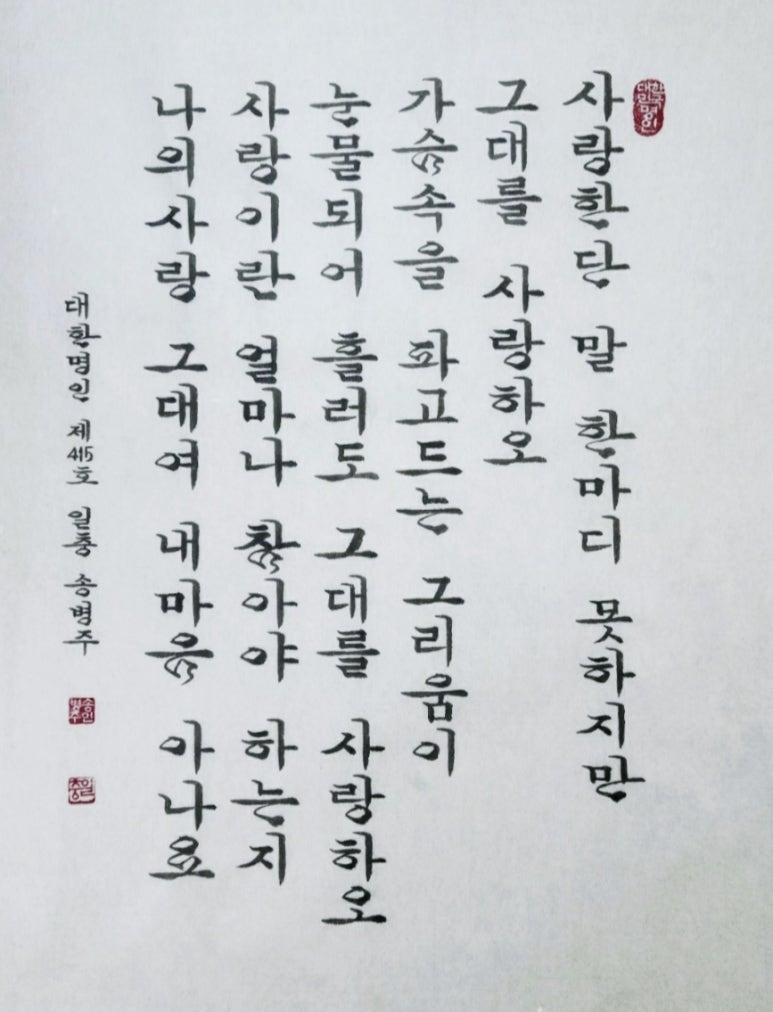 대한민국명인
사랑한단 말 한마디 못하지만
그대를 사랑하오
가슴속을 파고드는 그리움이
눈물되어 흘러도 그대를 사랑하오
사랑이란 얼마나 참아야 하는지
나의사랑 그대여 내마음 아나요
대한명인 제415호 일충 송병주
송병주인
일충